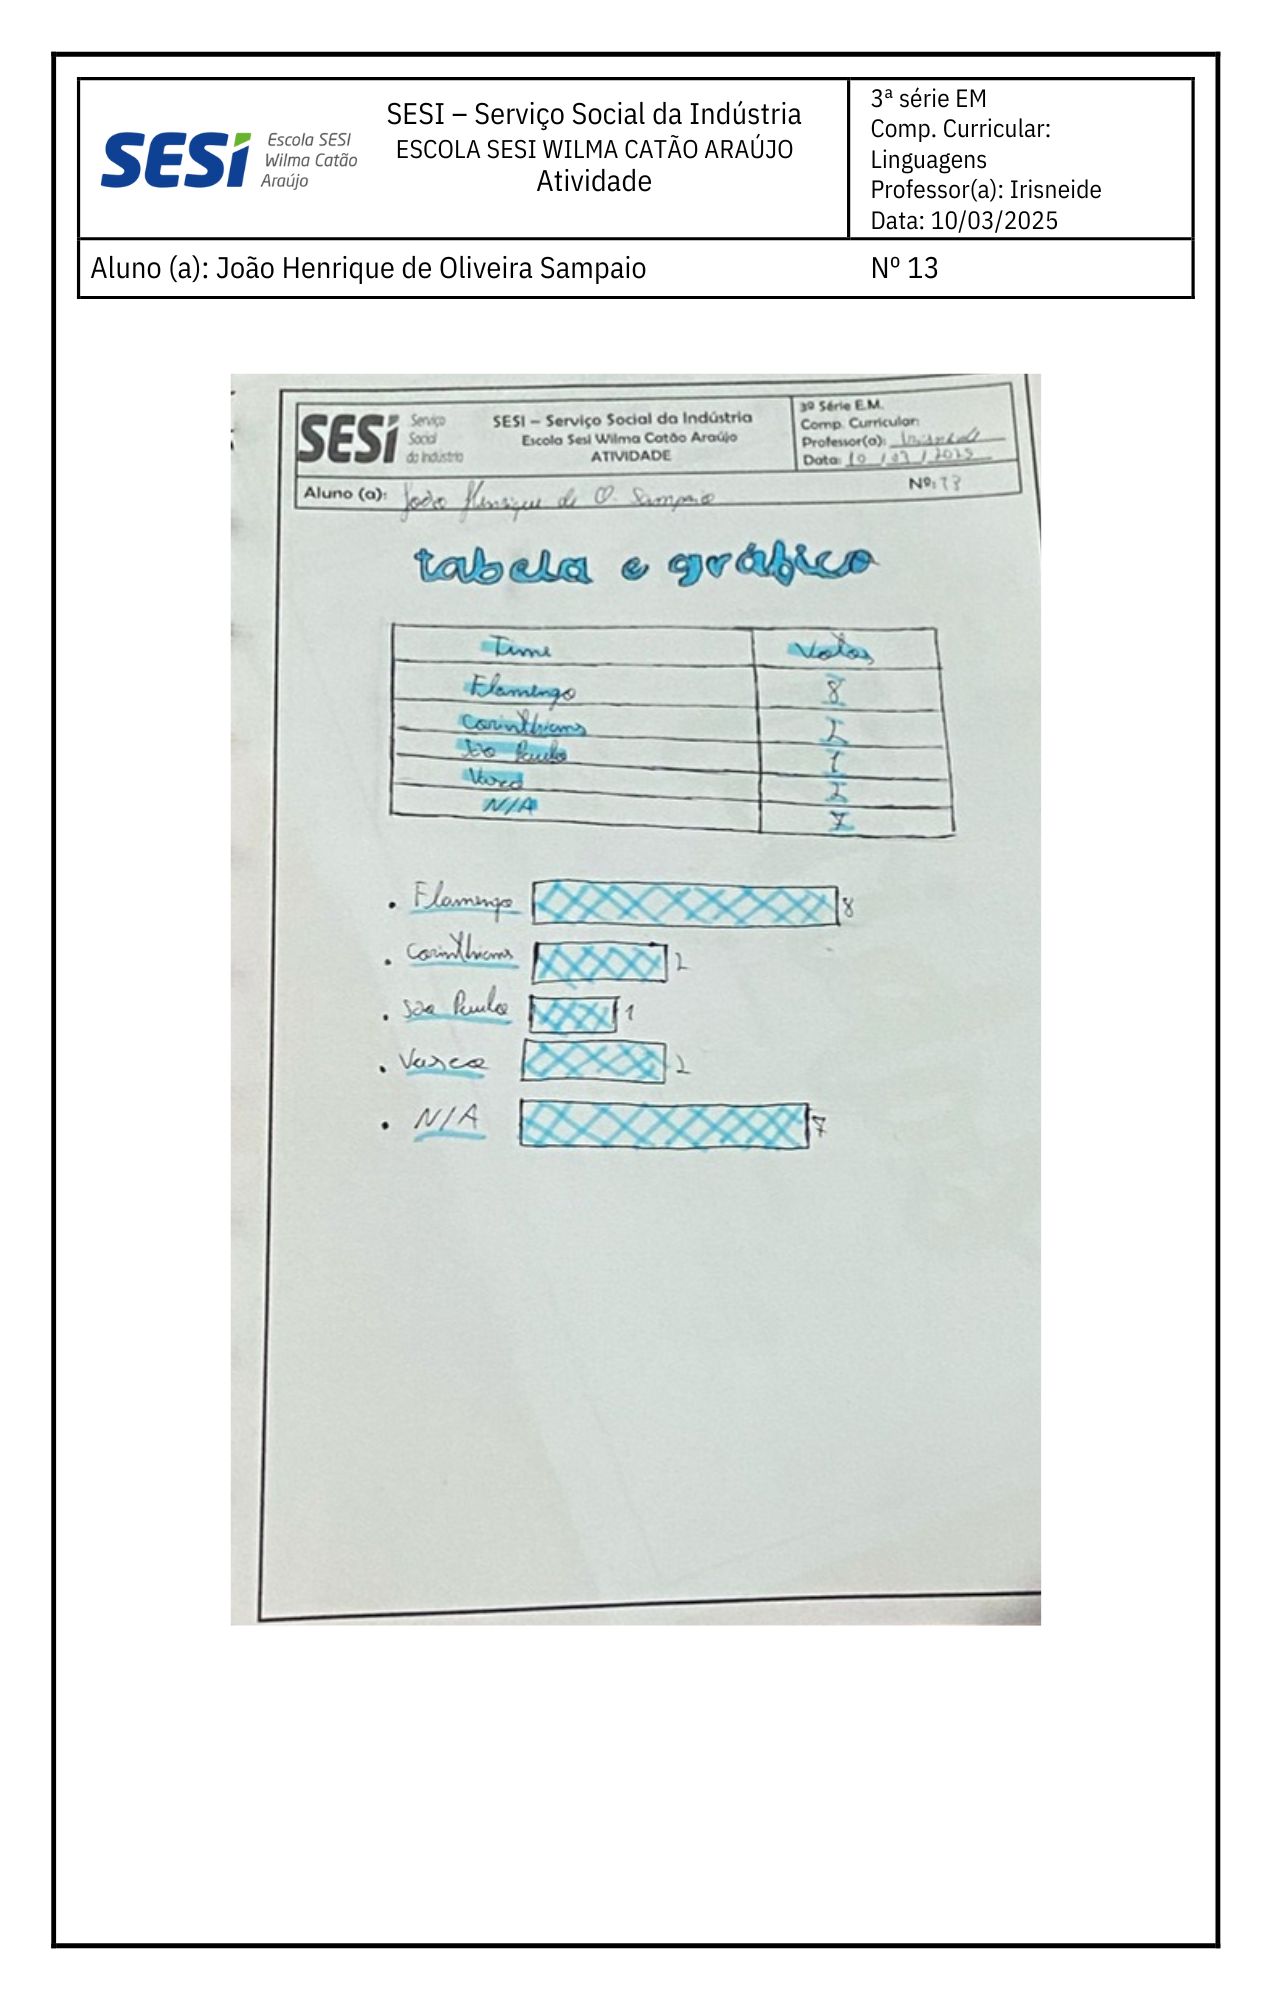 SESI Escola SESI
Wilma Catão
Araújo
SESI – Serviço Social da Indústria
ESCOLA SESI WILMA CATÃO ARAÚJO
Atividade
3ª série EM
Comp. Curricular:
Linguagens
Professor(a): Irisneide
Data: 10/03/2025
Aluno (a): João Henrique de Oliveira Sampaio Nº 13
SESI Serviço
Social
da Indústria
SESI – Serviço Social da Indústria
Escola Sesi Wilma Catão Araújo
ATIVIDADE
3º Série E.M.
Comp. Curricular:
Professor(a): Irisneide
Data: 10/03/2025
Aluno (a): João Henrique de O. Sampaio Nº: 13
tabela e gráfico
Time Votos
Flamengo 8
Corinthians 2
São Paulo 1
Vasco 2
N/A 7
• Flamengo 8
• Corinthians 2
• São Paulo 1
• Vasco 2
• N/A 7